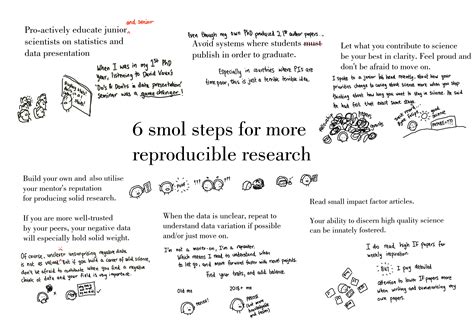 and senior
Pro-actively educate junior
scientists on statistics and
data presentation
When I was in my 1st PhD
year, listening to David Vaux's
"Do's & Don'ts in data presentation"
Seminar was a game changer!
Even though my own PhD produced 2 1st author papers...
Avoid systems where students must
publish in order to graduate.
Especially in countries where PIs are
time poor, this is just a terrible terrible idea.
Let what you contribute to science
be your best in clarity. Feel proud and
don't be afraid to move on.
I spoke to a junior lab head recently, about how your
priorities change to caring about science more when you stop
thinking about how long you want to stay in science. He said
he had felt that exact same state.
6 smol steps for more
reproducible research
Build your own and also utilise
your mentor's reputation
for producing solid research.
If you are more well-trusted
by your peers, your negative data
will especially hold solid weight.
Of course, unclear unsurprising negative data
is not as valued. But if you build a career of solid science,
don't be afraid to contribute when you find a negative
chunk of data and your field is very impactful.
When the data is unclear, repeat to
understand data variation if possible
and/or just move on.
I'm not a mover-on, I'm a repeater.
Which means I need to understand when
to let go, and move forward faster with most projects.
Find your traits, and add balance.
Old me
2018+ me
Read small impact factor articles.
Your ability to discern high quality science
can be innately fostered.
I do read high IF papers for
weekly inspiration
BUT I pay detailed
attention to lower IF papers more
when writing and researching my
own papers.